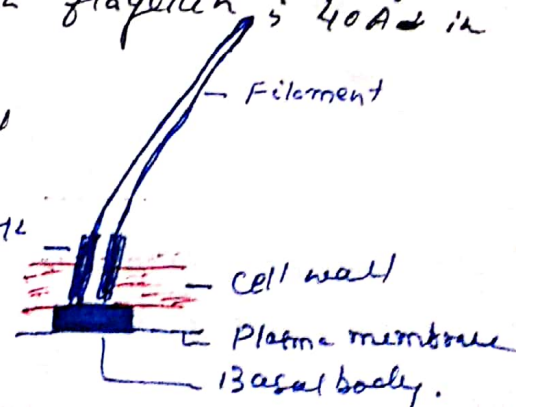 flagellin is 40A in
Filament
cell wall
Plasma membrane
Basal body.